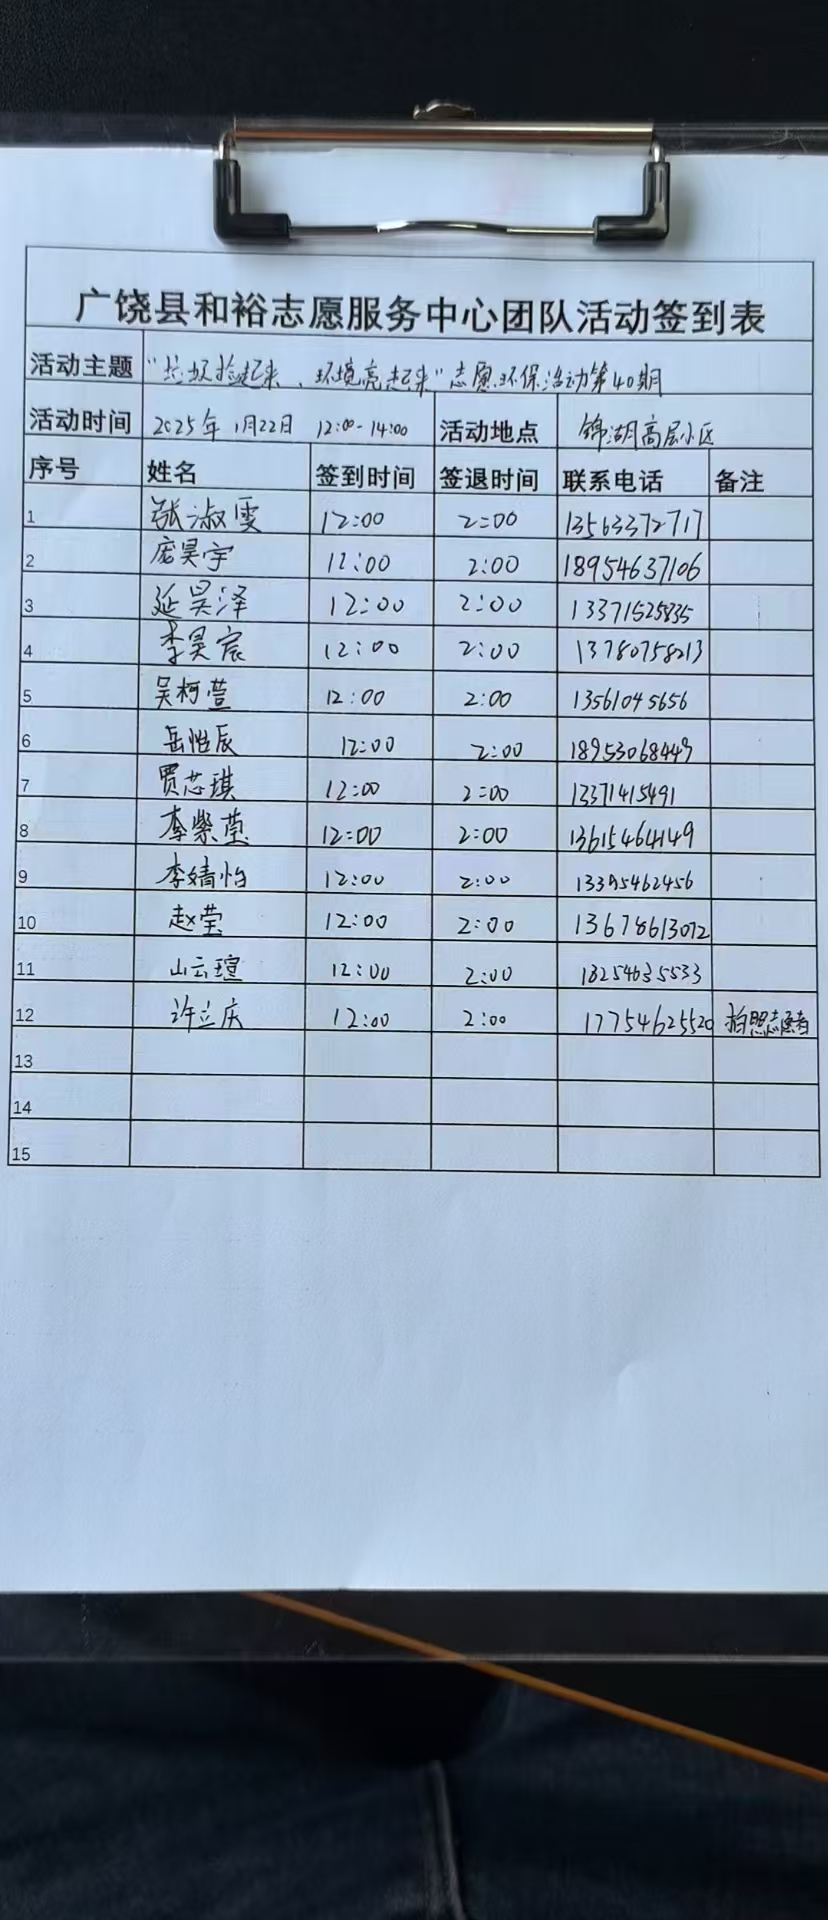 广饶县和裕志愿服务中心团队活动签到表
活动主题 "垃圾捡起来、环境亮起来"志愿环保活动第40期
活动时间 2025年1月22日 12:00-14:00 活动地点 锦湖高层小区
序号 姓名 签到时间 签退时间 联系电话 备注
1 张淑雯 12:00 2:00 13563372717
2 庞昊宇 12:00 2:00 18954637106
3 延昊泽 12:00 2:00 13371525835
4 李昊宸 12:00 2:00 13780758213
5 吴柯萱 12:00 2:00 13561045656
6 岳恒辰 12:00 2:00 18953068449
7 贾芯琪 12:00 2:00 13371415491
8 李紫莹 12:00 2:00 13615464149
9 李婧怡 12:00 2:00 13395462456
10 赵莹 12:00 2:00 13678613072
11 山云瑄 12:00 2:00 18254635533
12 许立庆 12:00 2:00 17754625520 拍照志愿者
13
14
15